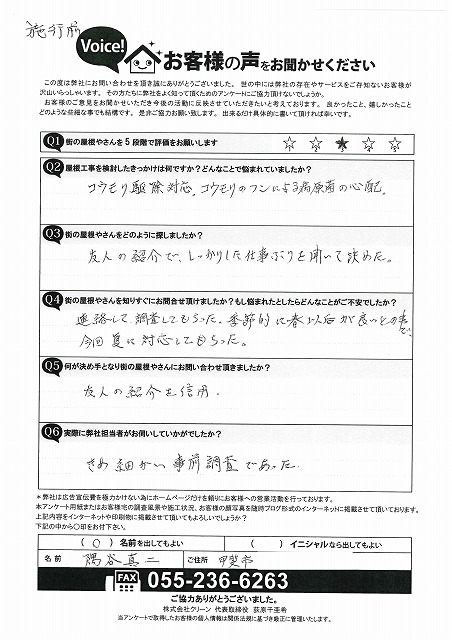 施行前
Voice!
お客様の声をお聞かせください
この度は弊社にお問い合わせを頂き誠にありがとうございました。 世の中には弊社の存在やサービスをご存知ないお客様が
沢山いらっしゃいます。 その方たちに弊社をよく知って頂くためのアンケートにご協力頂けないでしょうか。
お客様のご意見をお聞かせいただき今後の活動に反映させていただきたいと考えております。 良かったこと、嬉しかったこと
どのような些細な事でも結構です。 是非ご協力お願い致します。 出来るだけ具体的に書いて頂ければ幸いです。
Q1 街の屋根やさんを5段階で評価をお願いします ☆ ☆ ★ ☆ ☆
Q2 屋根工事を検討したきっかけは何ですか？どんなことで悩まれていましたか？
コウモリ駆除対応。コウモリのフンによる病原菌の心配。
Q3 街の屋根やさんをどのように探しましたか？
友人の紹介で、しっかりした仕事ぶりを聞いて決めた。
Q4 街の屋根やさんを知りすぐにお問合せ頂けましたか？もし悩まれたとしたらどんなことがご不安でしたか？
連絡して調査してもらった。季節的に春以后が良いとの事で、
今回夏に対応してもらった。
Q5 何が決め手となり街の屋根やさんにお問い合わせ頂きましたか？
友人の紹介を信用.
Q6 実際に弊社担当者がお伺いしていかがでしたか？
きめ細かい事前調査であった.
＊弊社は広告宣伝費を極力かけない為にホームページだけを頼りにお客様への営業活動を行っております。
本アンケート用紙またはお客様宅の調査風景や施工状況、お客様の顔写真を随時ブログ形式のインターネットに掲載させて頂いております。
上記内容をインターネットや印刷物に掲載させて頂いてもよろしいでしょうか？
下記の中から○印をお付下さい。
( ○ ) 名前を出してもよい ( ) イニシャルなら出してもよい
名前 隅谷真二 ご住所 甲斐市
FAX 055-236-6263
ご協力ありがとうございました。
株式会社クリーン 代表取締役 荻原千亜希
当アンケートで取得したお客様の個人情報は関係法規に基づき厳正に管理いたします。